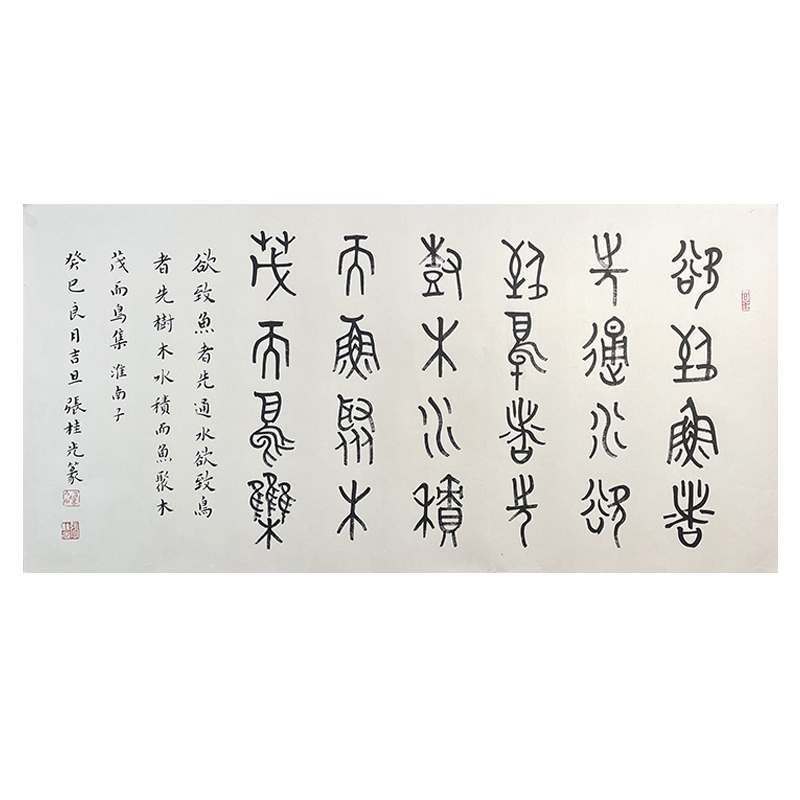 欲致魚者
先通水欲
致鳥者先
樹木水積
而魚聚木
茂而鳥集
欲致魚者先通水欲致鳥
者先樹木水積而魚聚木
茂而鳥集 淮南子
癸巳良月吉旦張桂光篆